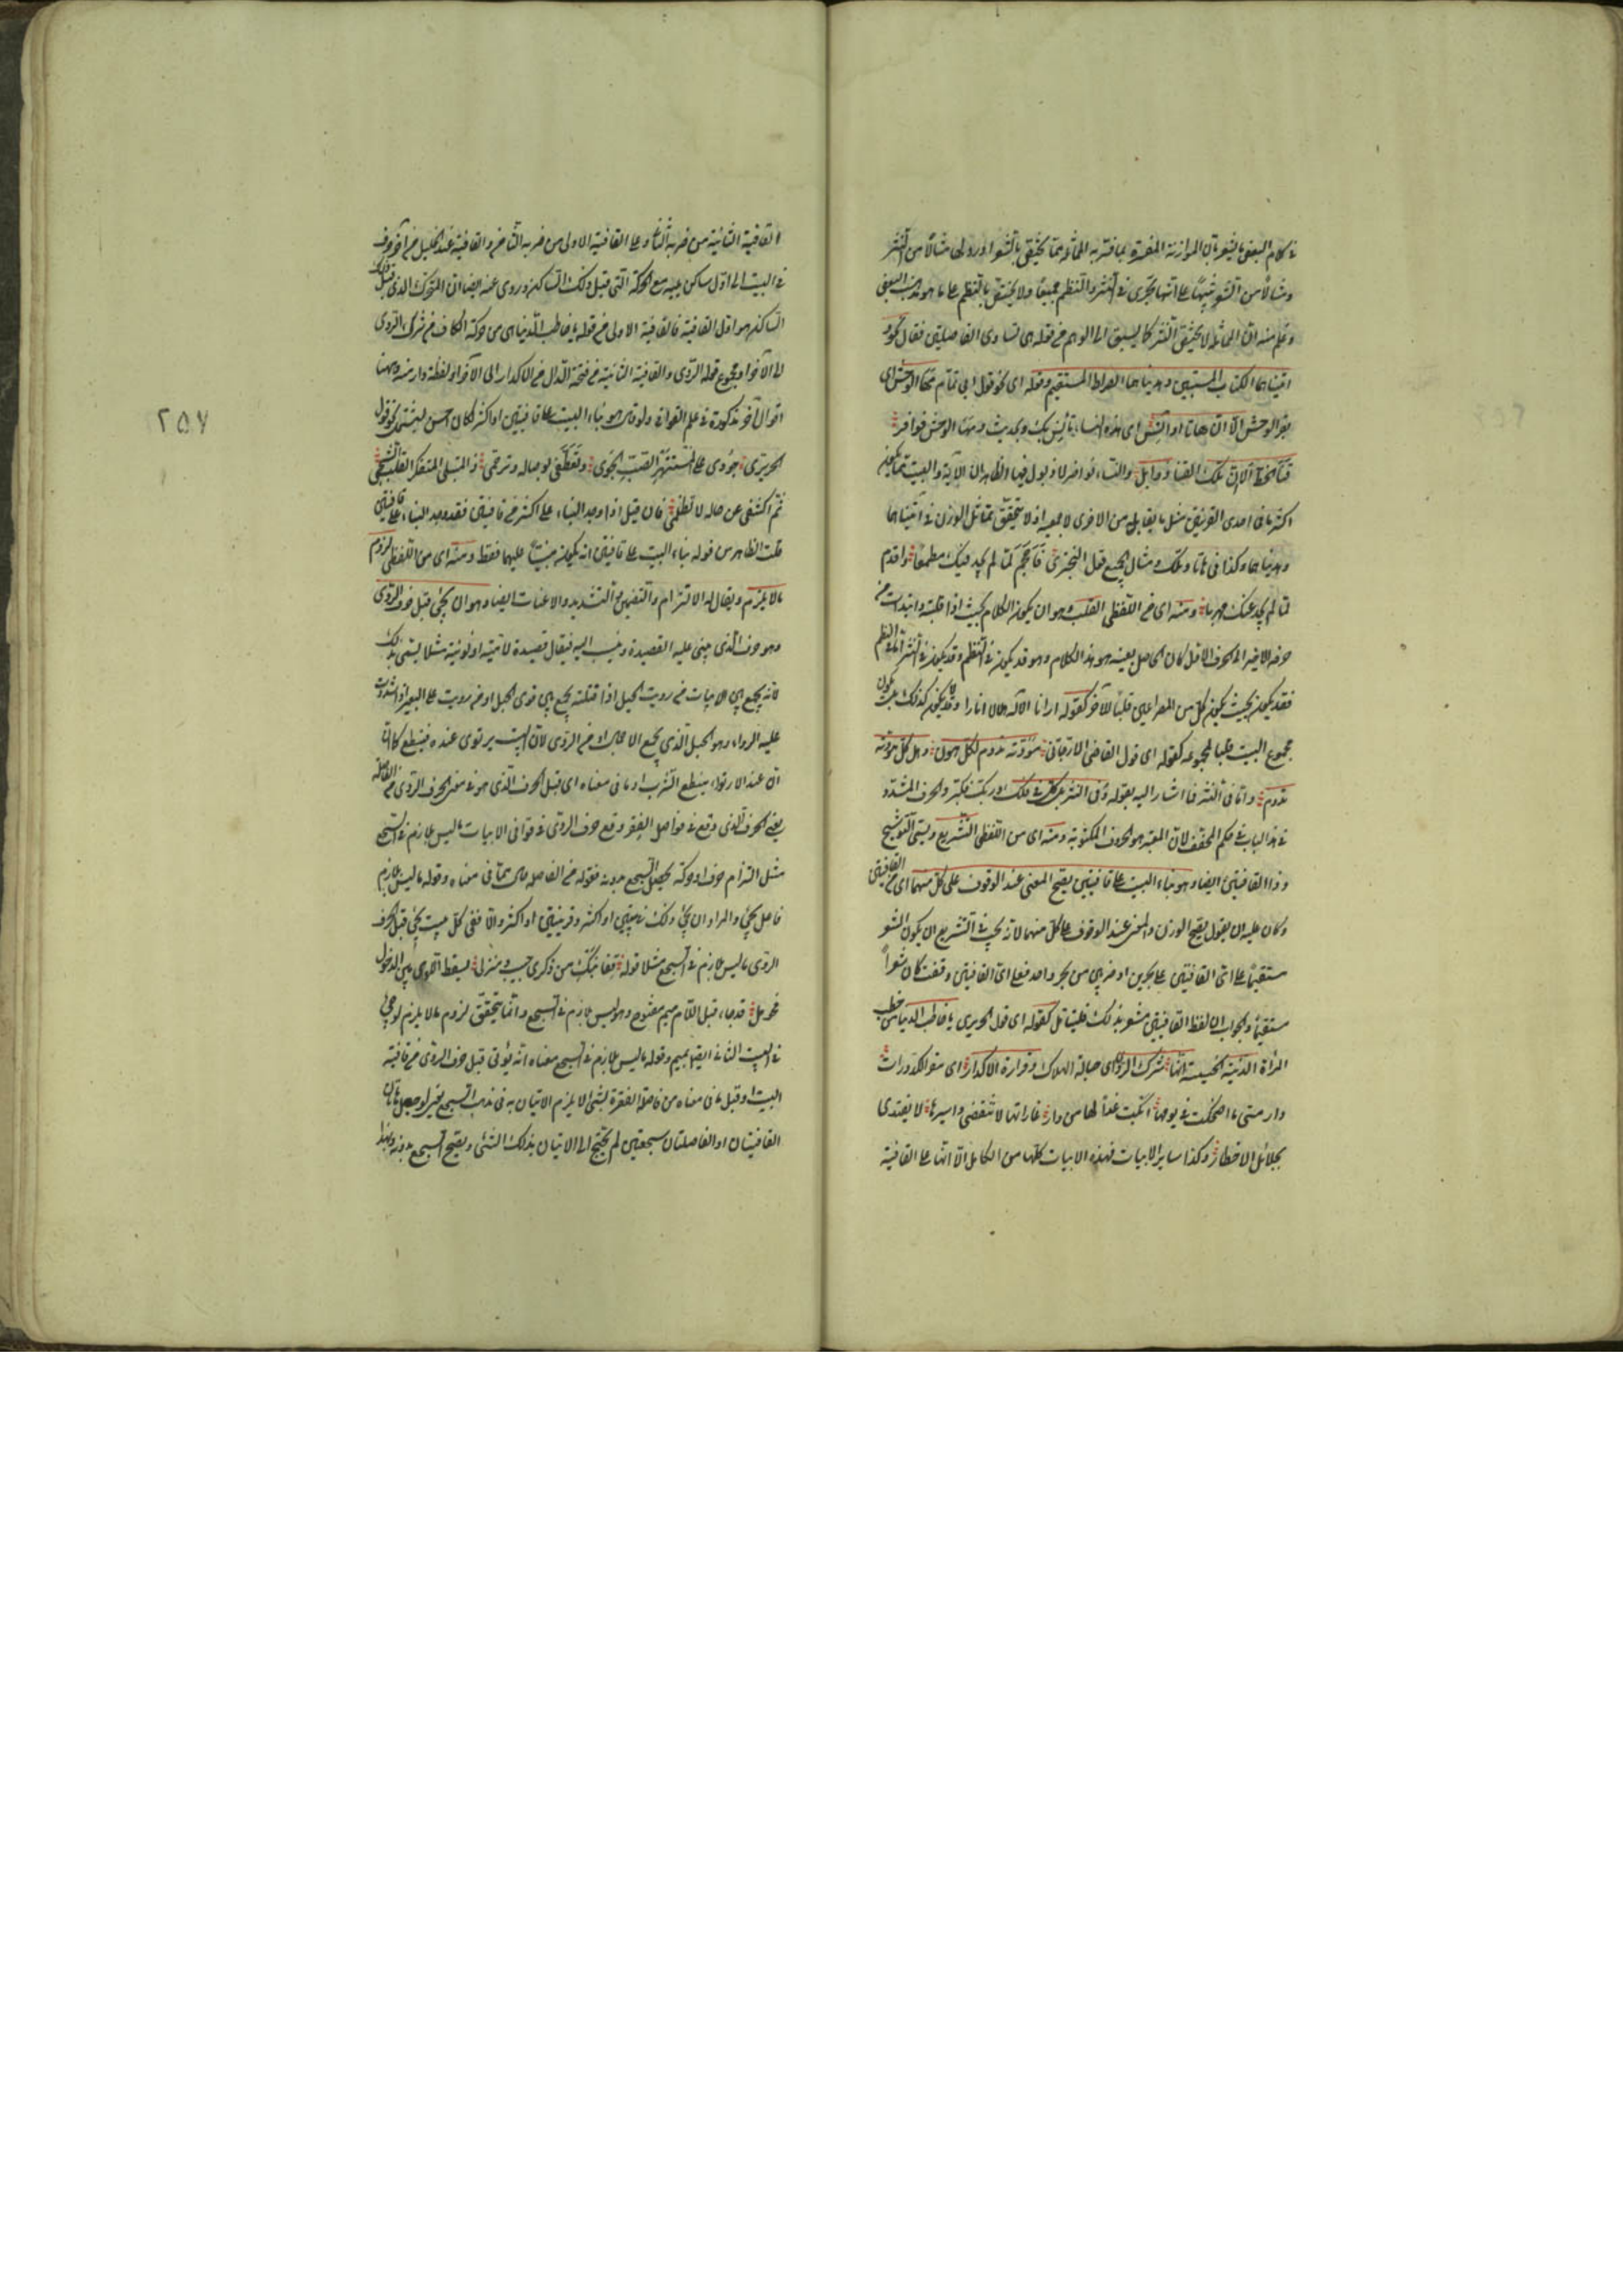 في كلام البعض ما يشعر بان الموازنة المفسرة بما فسر به المماثلة مما يختص بالشعر اورد لها مثالا من النثر
ومثالا من الشعر تنبيها على انها تجرى في النثر والنظم جميعا ولا يختص بالنظم على ما هو مذهب البعض
وعلم منه ان المماثلة لا يختص النثر كما يسبق الى الوهم من قوله هي تساوى الفاصلتين فقال نحو و
اتيناهما الكتاب المستبين وهديناهما الصراط المستقيم وقوله اى نحو قول ابى تمام مها الوحش اى
بقر الوحش الا ان هاتا اوانس اى هذه النساء تأنس بك وبحديثك ومها الوحش نوافر
قنا الخط الا ان تلك القنا ذوابل والنساء نواضر لا ذبول فيها الظاهر ان الآية والبيت مما يكون
اكثر ما في احدى القرينتين مثل ما يقابل من الاخرى لا جميعه اذ لا يتحقق تماثل الوزن في آتيناهما
وهديناهما وكذا في هاتا وتلك ومثال الجميع قول البحترى فاحجم لما لم يجد فيك مطمعا واقدم
لما لم يجد عنك مهربا ومنه اى من اللفظى القلب وهو ان يكون الكلام بحيث اذا قلبته وابتدأت من
حرفه الاخير الى الحرف الاول كان الحاصل بعينه هو هذا الكلام وهو قد يكون في النظم وقد يكون في النثر اما في النظم
فقد يكون بحيث يكون كل من المصراعين قلبا للآخر كقوله ارانا الاله هلالا انارا وقد لا يكون كذلك بل يكون
مجموع البيت قلبا لمجموعه كقوله اى قول القاضى الارجانى مودته تدوم لكل هول وهل كل مودته
تدوم واما في النثر فما اشار اليه بقوله وفى التنزيل كل في فلك وربك فكبر والحرف المشدد
في هذا الباب في حكم المخفف لان المعتبر هو الحروف المكتوبة ومنه اى من اللفظى التشريع ويسمى التوشيح
وذا القافيتين ايضا وهو بناء البيت على قافيتين يصح المعنى عند الوقوف على كل منهما اى من القافيتين
وكان عليه ان يقول يصح الوزن والمعنى عند الوقوف على كل منهما لانه يجب في التشريع ان يكون الشعر
مستقيما على اى القافيتين على بحرين او ضربين من بحر واحد فعلى اى القافيتين وقفت كان شعرا
مستقيما والجواب ان لفظ القافيتين مشعر بذلك فليتأمل كقوله اى قول الحريرى يا خاطب الدنيا من خطب
المرأة الدنية الخسيسة انها شرك الردى اى حبالة الهلاك وقرارة الاكدار اى مقر الكدورات
دار متى ما اضحكت في يومها ابكت غدا لها من دار غاراتها لا تنقضى واسيرها لا يفتدى
بجلائل الاخطار وكذا سائر الابيات فهذه الابيات كلها من الكامل الا انها على القافية
القافية الثانية من ضربه الثانى وعلى القافية الاولى من ضربه الثامن والقافية عند الخليل من آخر حرف
في البيت الى اول ساكن يليه مع الحركة التى قبل ذلك الساكن وروى عنه ايضا ان المتحرك الذى قبل ذلك
الساكن هو اول القافية فالقافية الاولى من قوله يا خاطب الدنيا هي من حركة الكاف من شرك الردى
الى الآخر او مجموع قوله الردى والقافية الثانية من فتحة الدال من الاكدار الى الآخر او لفظة دار منه وههنا
اقوال اخر مذكورة في علم القوافى ولو قال هو بناء البيت على قافيتين او اكثر لكان احسن ليشمل نحو قول
الحريرى جودى على المستهتر الصب الجوى وتعطفى لوصاله وترحمى ذا المبتلى المتفكر القلب الشجى
ثم اكشفى عن حاله لا تظلمى فان قيل اذا وجد البناء على اكثر من قافيتين فقد وجد البناء على قافيتين
قلت الظاهر من قوله بناء البيت على قافيتين انه يكون مبنيا عليهما فقط ومنه اى من اللفظى لزوم
ما لا يلزم ويقال له الالتزام والتضمين والتشديد والاعنات ايضا وهو ان يجئ قبل حرف الروى
وهو حرف الذى يبنى عليه القصيدة وينسب اليه فيقال قصيدة لامية او نونية مثلا يسمى بذلك
لانه يجمع بين الابيات من رويت الحبل اذا فتلته يجمع بين قوى الحبل او من رويت على البعير اذا شددت
عليه الرواء وهو الحبل الذى يجمع الاحمال او من الرى لان البيت يرتوى عنده فينقطع كما
ان عند الارتواء ينقطع الشرب او ما في معناه اى قبل الحرف الذى هو في معنى الحرف الروى من الفاصلة
يعنى الحرف الذى وقع في فواصل الفقر وقع حرف الروى في قوافى الابيات ما ليس بلازم في السجع
مثل التزام حرف او حركة يحصل السجع بدونه فقوله من الفاصلة حال مما في معناه وقوله ما ليس بلازم
فاعل يجئ والمراد ان يجئ ذلك في بيتين او اكثر وقرينتين او اكثر والا ففى كل بيت يجئ قبل الحرف
الروى ما ليس بلازم في السجع مثلا قوله قفا نبك من ذكرى حبيب ومنزل بسقط اللوى بين الدخول
فحومل قد جاء قبل اللام ميم مفتوح وهو ليس بلازم في السجع وانما يتحقق لزوم ما لا يلزم لو جئ
في البيت الثانى ايضا بميم وقوله ما ليس بلازم في السجع معناه انه يؤتى قبل حرف الروى من قافية
البيت او قبل ما في معناه من فاصلة الفقرة بشئ لا يلزم الاتيان به في مذهب السجع يعنى لو جعل هاتان
القافيتان او الفاصلتان سجعتين لم يحتج الى الاتيان بذلك الشئ ويصح السجع بدونه وبهذا
٢٥٧